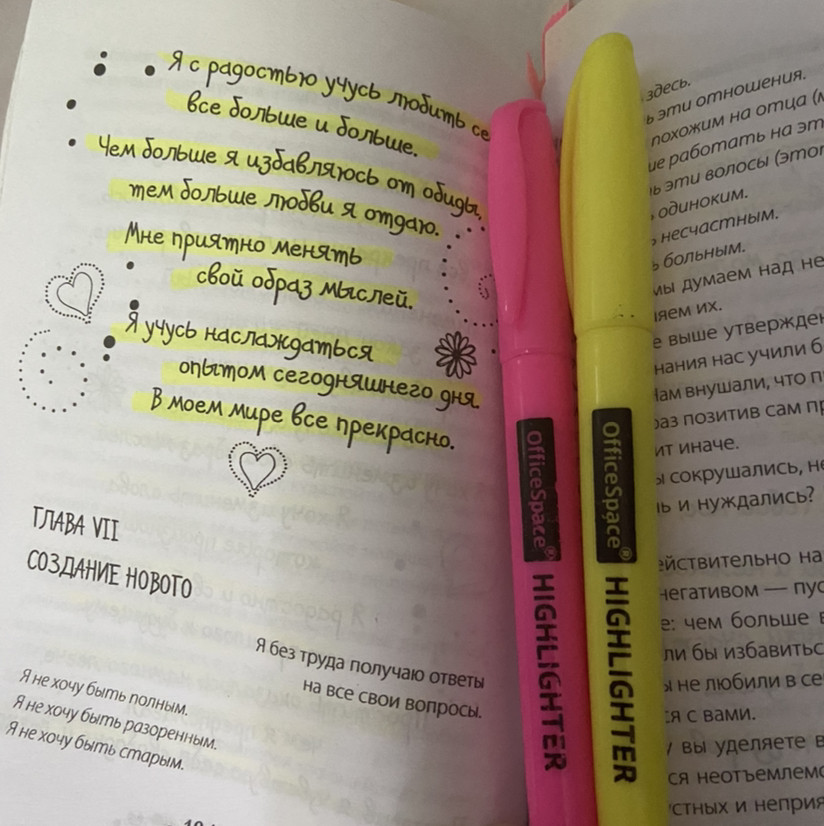 Я с радостью учусь любить се
все больше и больше.
Чем больше я избавляюсь от обиды,
тем больше любви я отдаю.
Мне приятно менять
свой образ мыслей.
Я учусь наслаждаться
опытом сегодняшнего дня.
В моем мире все прекрасно.
ГЛАВА VII
СОЗДАНИЕ НОВОГО
Я без труда получаю ответы
на все свои вопросы.
Я не хочу быть полным.
Я не хочу быть разоренным.
Я не хочу быть старым.
OfficeSpace® HIGHLIGHTER
OfficeSpace® HIGHLIGHTER
здесь.
ь эти отношения.
похожим на отца (м
ие работать на эт
ь эти волосы (этог
одиноким.
ь несчастным.
ь больным.
мы думаем над не
яем их.
е выше утвержден
нания нас учили б
Нам внушали, что п
раз позитив сам пр
ит иначе.
ы сокрушались, не
ь и нуждались?
ействительно на
негативом — пус
е: чем больше в
ли бы избавитьс
ы не любили в се
ся с вами.
у вы уделяете в
ся неотъемлемо
стных и неприя